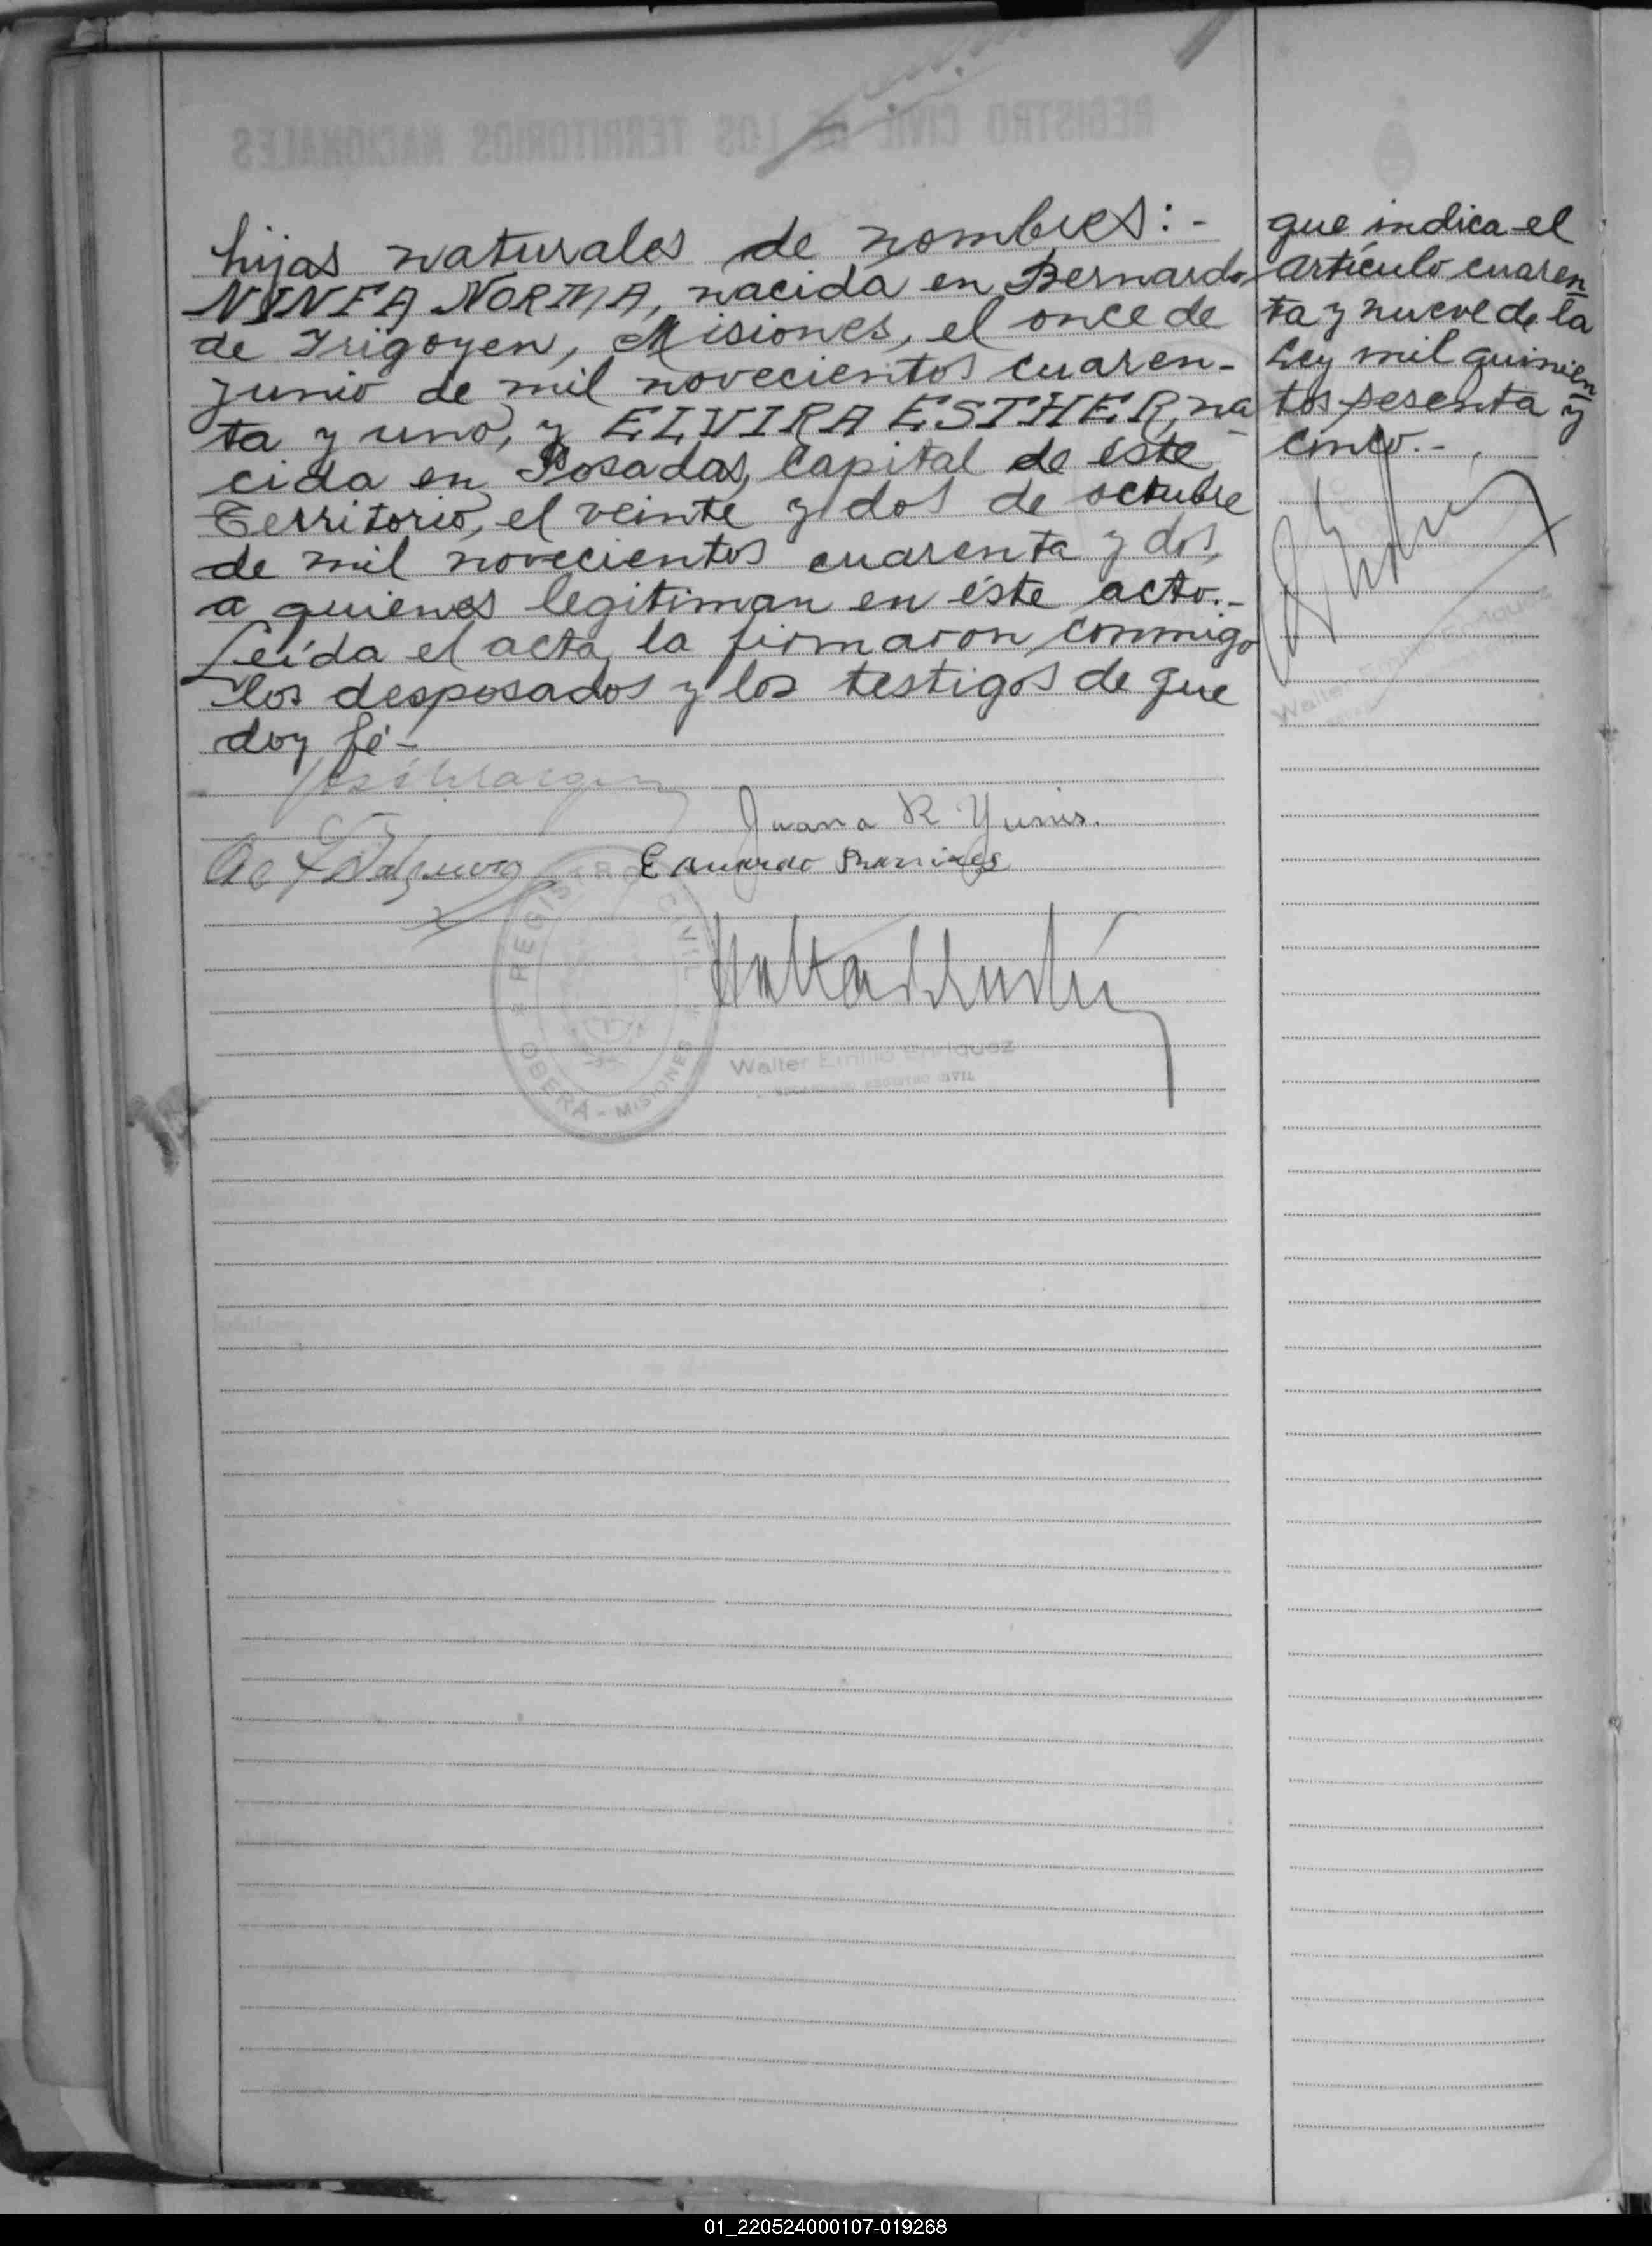 hijas naturales de nombres:-
NINFA NORMA, nacida en Bernardo
de Irigoyen, Misiones, el once de
junio de mil novecientos cuaren-
ta y uno, y ELVIRA ESTHER, na
cida en Posadas, Capital de éste
Territorio, el veinte y dos de octubre
de mil novecientos cuarenta y dos,
a quienes legitiman en éste acto.-
Leída el acta, la firmaron conmigo
los desposados y los testigos de que
doy fé-
Juana R Yunis.
Eduardo Ramirez
REGISTRO CIVIL
OBERA - MISIONES
Walter Emilio Enriquez
REGISTRO CIVIL
que indica el
artículo cuaren
ta y nueve de la
Ley mil quinien
tos sesenta y
cinco.-
Walter Emilio Enriquez
REGISTRO CIVIL DE LOS TERRITORIOS NACIONALES
01_220524000107-019268